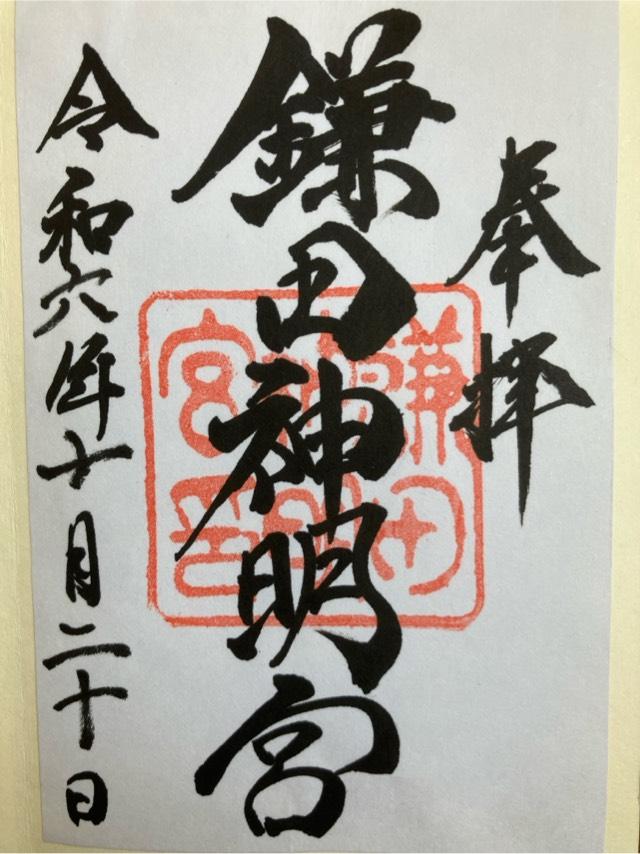 奉拝
鎌田神明宮
令和六年十月二十日